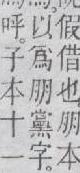 假借也朋本
以爲朋黨字。
呼。子本十一